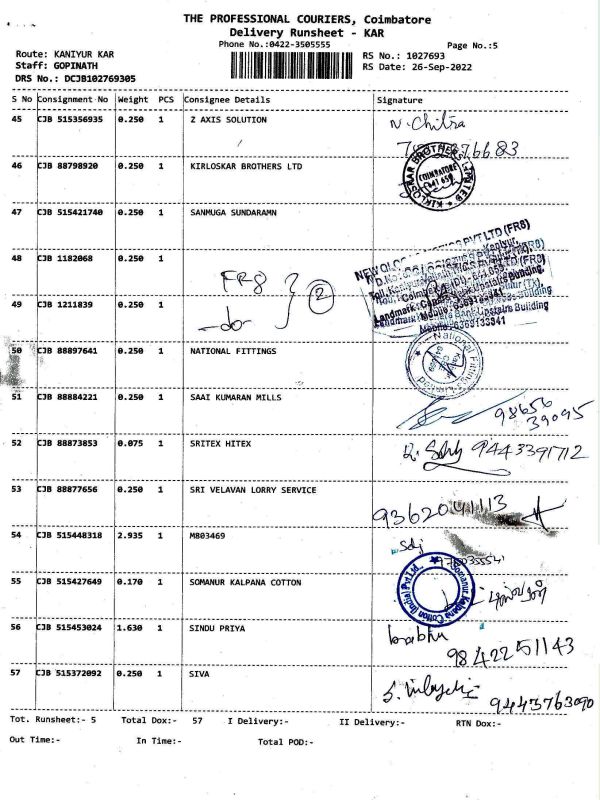 THE PROFESSIONAL COURIERS, Coimbatore
Delivery Runsheet - KAR
Phone No.:0422-3505555
Page No.:5
Route: KANIYUR KAR
Staff: GOPINATH
DRS No.: DCJB102769305
RS No.: 1027693
RS Date: 26-Sep-2022
S No Consignment No Weight PCS Consignee Details Signature
45 CJB 515356935 0.250 1 Z AXIS SOLUTION N. Chitra
76683
46 CJB 88798920 0.250 1 KIRLOSKAR BROTHERS LTD
KIRLOSKAR BROTHERS LIMITED
COIMBATORE
641 659
47 CJB 515421740 0.250 1 SANMUGA SUNDARAMN
48 CJB 1182068 0.250 1 FR8
2
49 CJB 1211839 0.250 1 -do-
50 CJB 88897641 0.250 1 NATIONAL FITTINGS
51 CJB 88884221 0.250 1 SAAI KUMARAN MILLS
98656
39095
52 CJB 88873853 0.075 1 SRITEX HITEX 9443391712
53 CJB 88877656 0.250 1 SRI VELAVAN LORRY SERVICE
9362041113
54 CJB 515448318 2.935 1 M803469
55 CJB 515427649 0.170 1 SOMANUR KALPANA COTTON
Somanur Kalpana Cotton (India) Pvt Ltd.
56 CJB 515453024 1.630 1 SINDU PRIYA
9842251143
57 CJB 515372092 0.250 1 SIVA
9443763090
Tot. Runsheet:- 5 Total Dox:- 57 I Delivery:- II Delivery:- RTN Dox:-
Out Time:- In Time:- Total POD:-